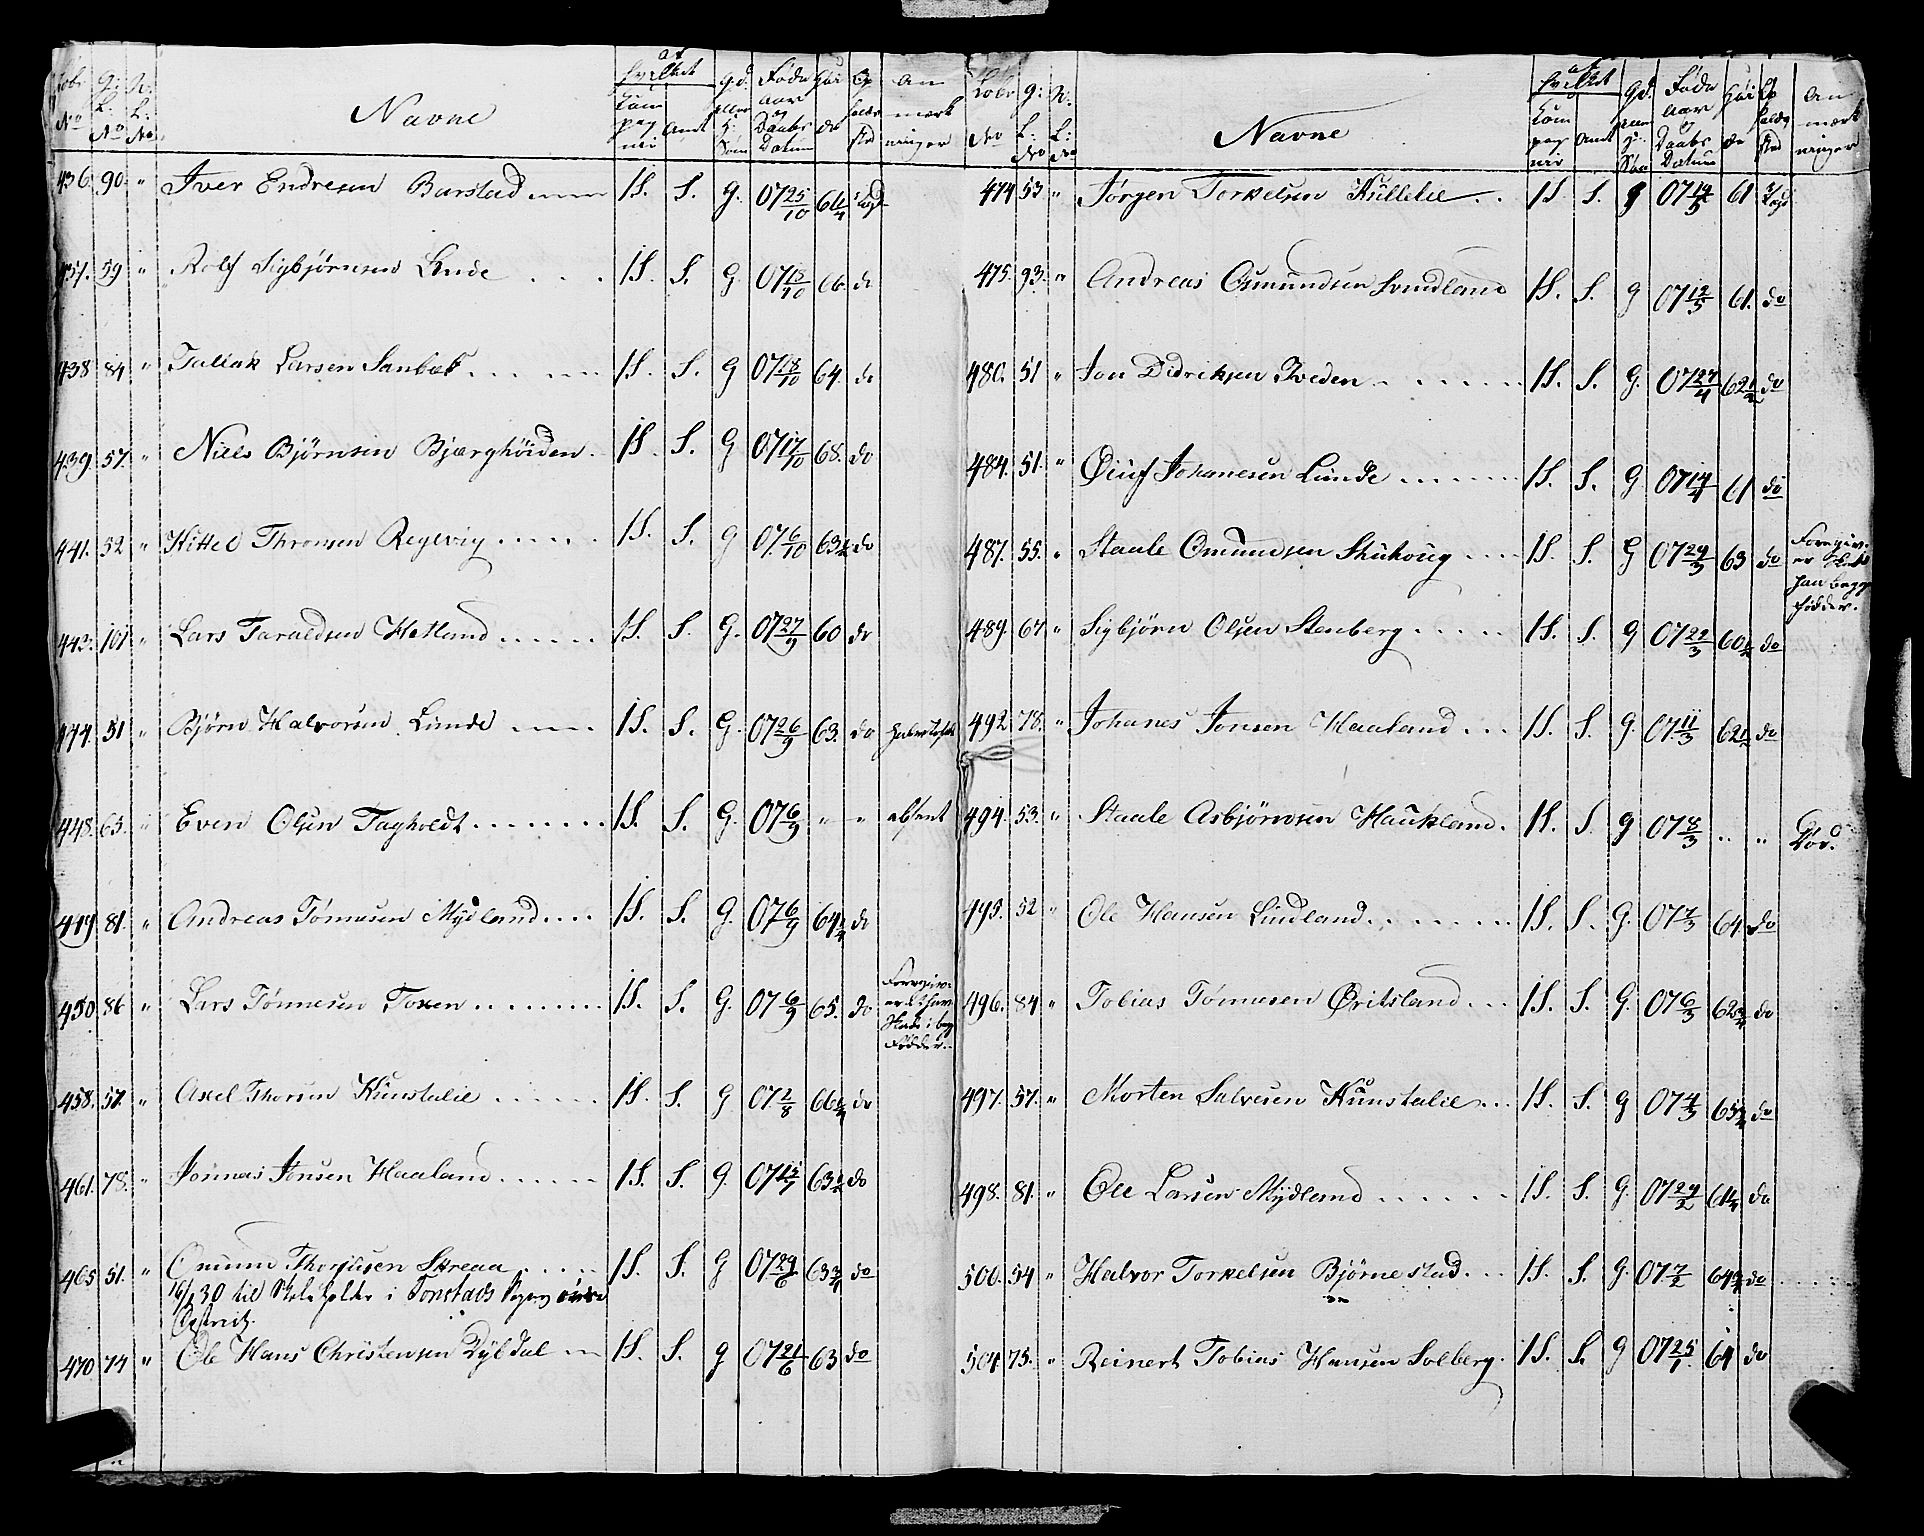 Løbe No | G: L: No | N: L: No | Navne | af hvilket Kompagni | Amt | Gd. eller H: Søn | Føde Aar og Daabs Datum | Høide | Op holds sted | An mærk ninger
436. 90. " Iver Endresen Barstad 1S. S. G. 07 25/10 66 1/4
437. 59 " Rolf Sigbjørnsen Lunde 1S. S. G. 07 18/10 66. do
438 84 " Tallak Larsen Sanbek 1S. S. G 07 18/10 64. do
439 57. " Niels Bjørnsen Bjærghöiden 1S. S. G 07 17/10 68. do
441. 52 " Kittel Thronsen Regevig 1S. S. G 07 6/10 63 1/2 do
443. 101 " Lars Taraldsen Hetland 1S. S. G. 07 27/9 60 do
444. 51 " Bjørn Halvorsen Lunde 1S. S. G. 07 26/9 63. do
448. 65. " Even Olsen Fagholdt 1S. S. G. 07 6/9 " " absent
449 81. " Andreas Tønnesen Mydland 1S. S. G. 07 6/9 64 1/4 do
450 86 " Lars Tønnesen Toxen 1S. S. G. 07 6/9 65. do
Fødder.
458. 57. " Axel Thorsen Kunstelie 1S. S. G 07 2/8 66 1/4 do
461. 78. " Jonnas Jonsen Haaland 1S. S. G. 07 15/7 63 1/2 do
465 51. " Omund Thorjusen Skreaa 1S. S. G 07 29/6 63 3/4 do
30 til Skoleholder i Tonstads Sogns
District.
470 74 " Ole Hans Christensen Ryldal 1S. S. G 07 21/6 63 do
Løbe No | G: L: No | N: L: No | Navne | af hvilket Kompagni | Amt | Gd. | Føde Aar og Daabs Datum | Høide | An mærk ninger
474 53 " Jørgen Torkelsen Kullelie 1S S. G 07 14/5 61
475. 93. " Andreas Osmundsen Svindland 1S. S. G 07 12/5 61. do
480. 51 " Jon Didriksen Tveden 1S. S. G. 07 27/4 62 1/2 do
484. 51. " Oluf Johannesen Lunde 1S. S. G 07 14/4 61 do
487. 55. " Staale Omundsen Skuhoug 1S. S. G 07 29/3 63 do
Fødder.
489. 67 " Sigbjørn Olsen Stenberg 1S. S. G 07 22/3 60 1/2 do
492 78. " Johanes Jonsen Haaland 1S. S. G. 07 11/3 62 1/2 do
494. 53. " Staale Asbjørnsen Haukland 1S. S G 07 8/3 " " Død.
495. 52 " Ole Hansen Lindland 1S. S. G. 07 7/3 64. do
496. 84 " Tobias Tønnesen Øritsland 1S. S. G. 07 6/3 62 3/4 do
497. 57. " Morten Salvesen Kunstelie 1S. S. G 07 4/3 65 3/4 do
498. 81. " Ole Larsen Mydland 1S. S. G. 07 24/2 61 1/4 do
500. 54 " Halvor Torkelsen Bjørnestad 1S. S. G. 07 7/2 64 3/4 do
504 75. " Reinert Tobias Hansen Solberg. 1S. S. G 07 25/1 64 do